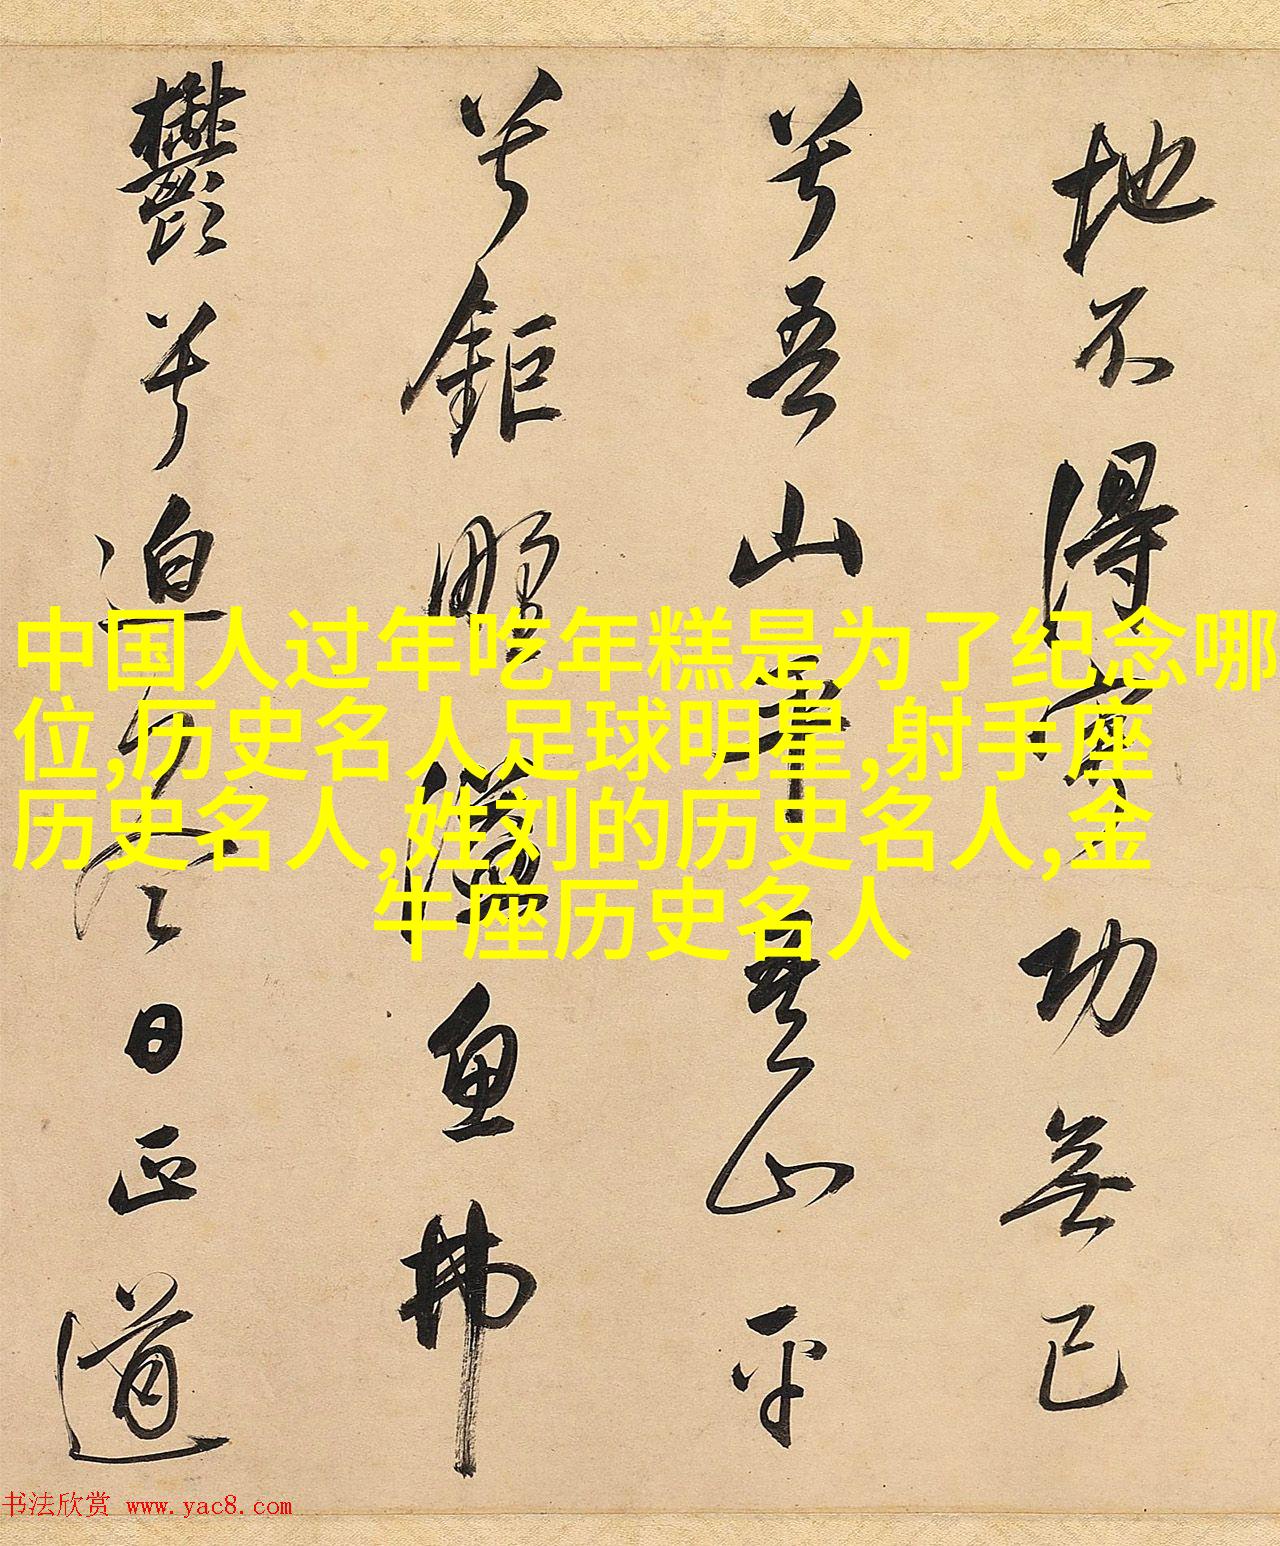 地不得寧功無已
兮吾山平吾山平
兮鉅野溢魚弗
鬱兮迫冬日正道
中国人过年吃年糕是为了纪念哪
位,历史名人足球明星,射手座
历史名人,姓刘的历史名人,金
牛座历史名人
书法欣赏 www.yac8.com